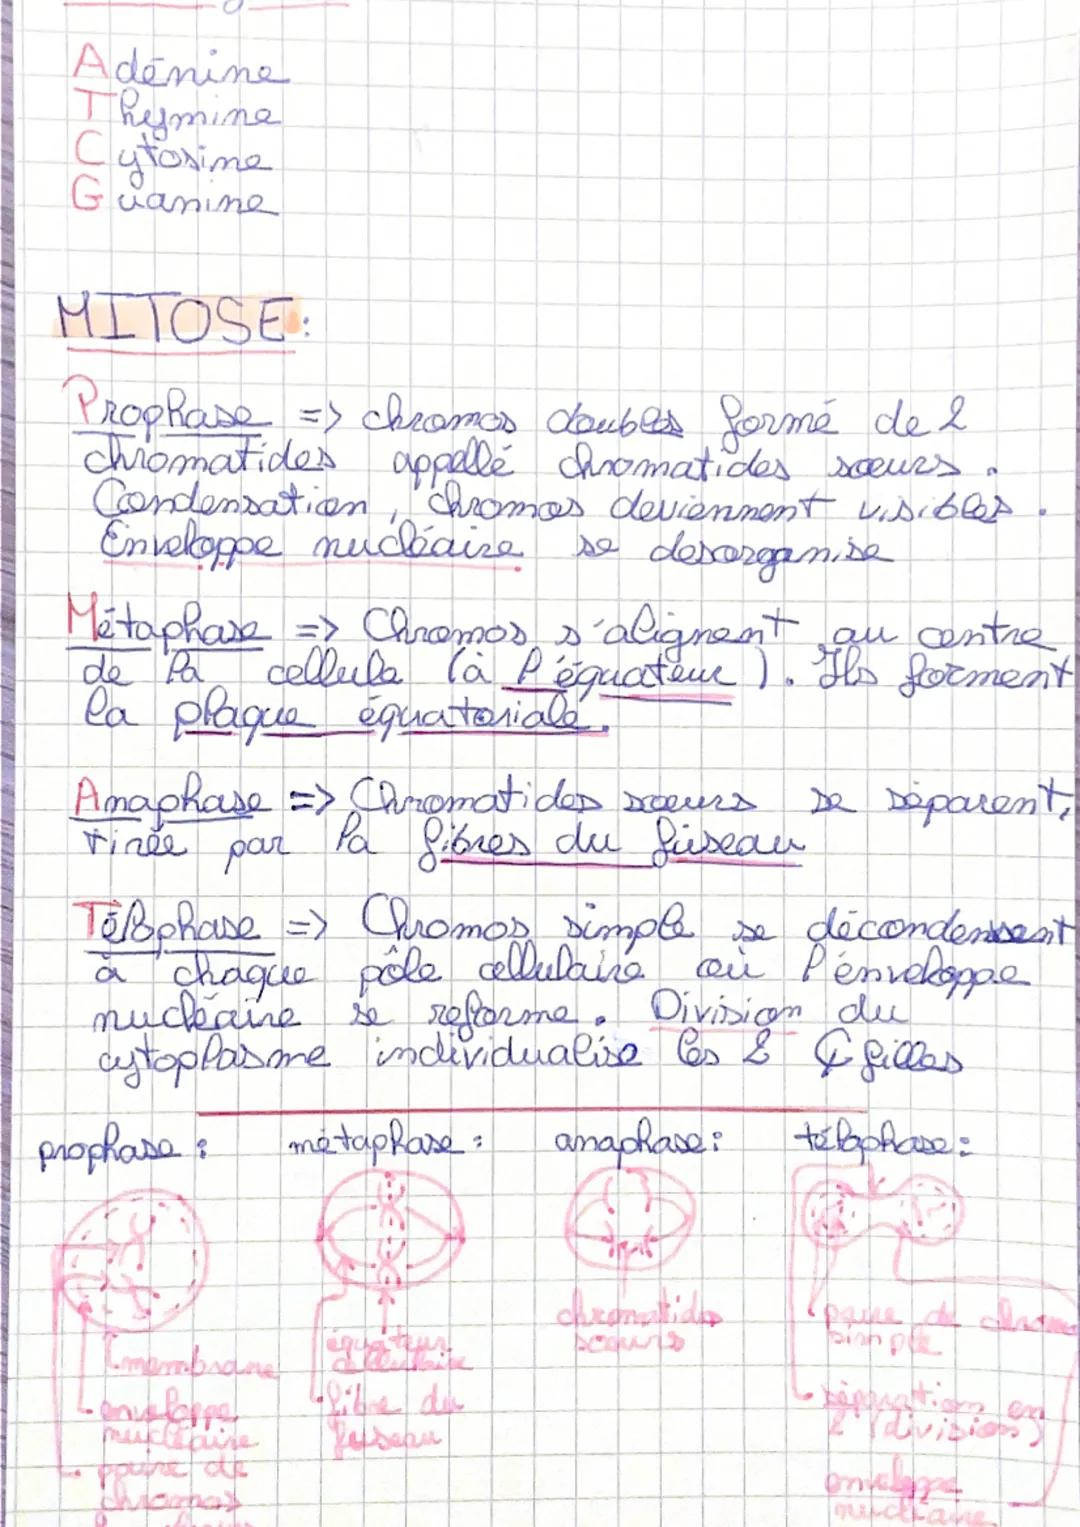 Adénine
Thymine
Cytosine
Guanine
MITOSE :
Prophase => chromos doubles formé de 2
chromatides appellé chromatides sœurs.
Condensation, chromos deviennent visibles.
Enveloppe nucléaire se desorganise
Métaphase => Chromos s'alignent au centre
de la cellule (à l'équateur). Ils forment
la plaque équatoriale.
Anaphase => Chromatides sœurs se séparent,
tirée par la fibres du fuseau
Télophase => Chromos simple se décondensent
à chaque pôle cellulaire où l'enveloppe
nucléaire se reforme. Division du
cytoplasme individualise les 2 filles
prophase : métaphase : anaphase : télophase :
membrane
enveloppe
nucléaire
paire de
chromos
équateur
cellulaire
fibre du
fuseau
chromatides
sœurs
paire de chromo
simple
séparation en
2 (division)
enveloppe
nucléaire